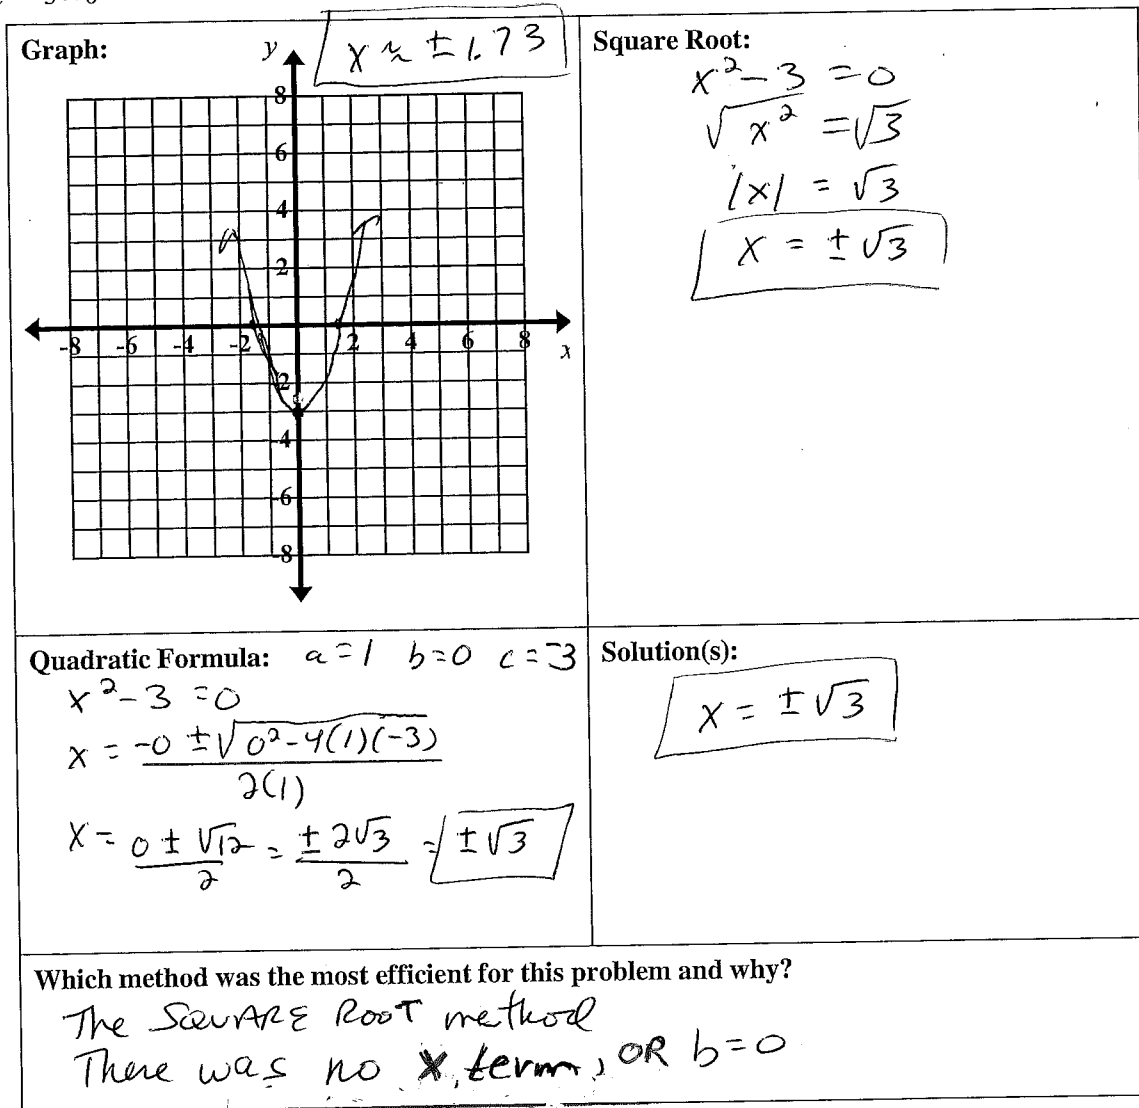 Graph:
y
x ≈ ±1.73
8
6
4
2
-8 -6 -4 -2 2 4 6 8
x
2
-4
-6
-8
Square Root:
x² - 3 = 0
√x² = √3
|x| = √3
x = ±√3
Quadratic Formula: a = 1 b = 0 c = -3
x² - 3 = 0
x = -0 ± √0² - 4(1)(-3)
2(1)
x = 0 ± √12 = ± 2√3 = ±√3
2 2
Solution(s):
x = ±√3
Which method was the most efficient for this problem and why?
The SQUARE ROOT method
There was no x term, OR b = 0